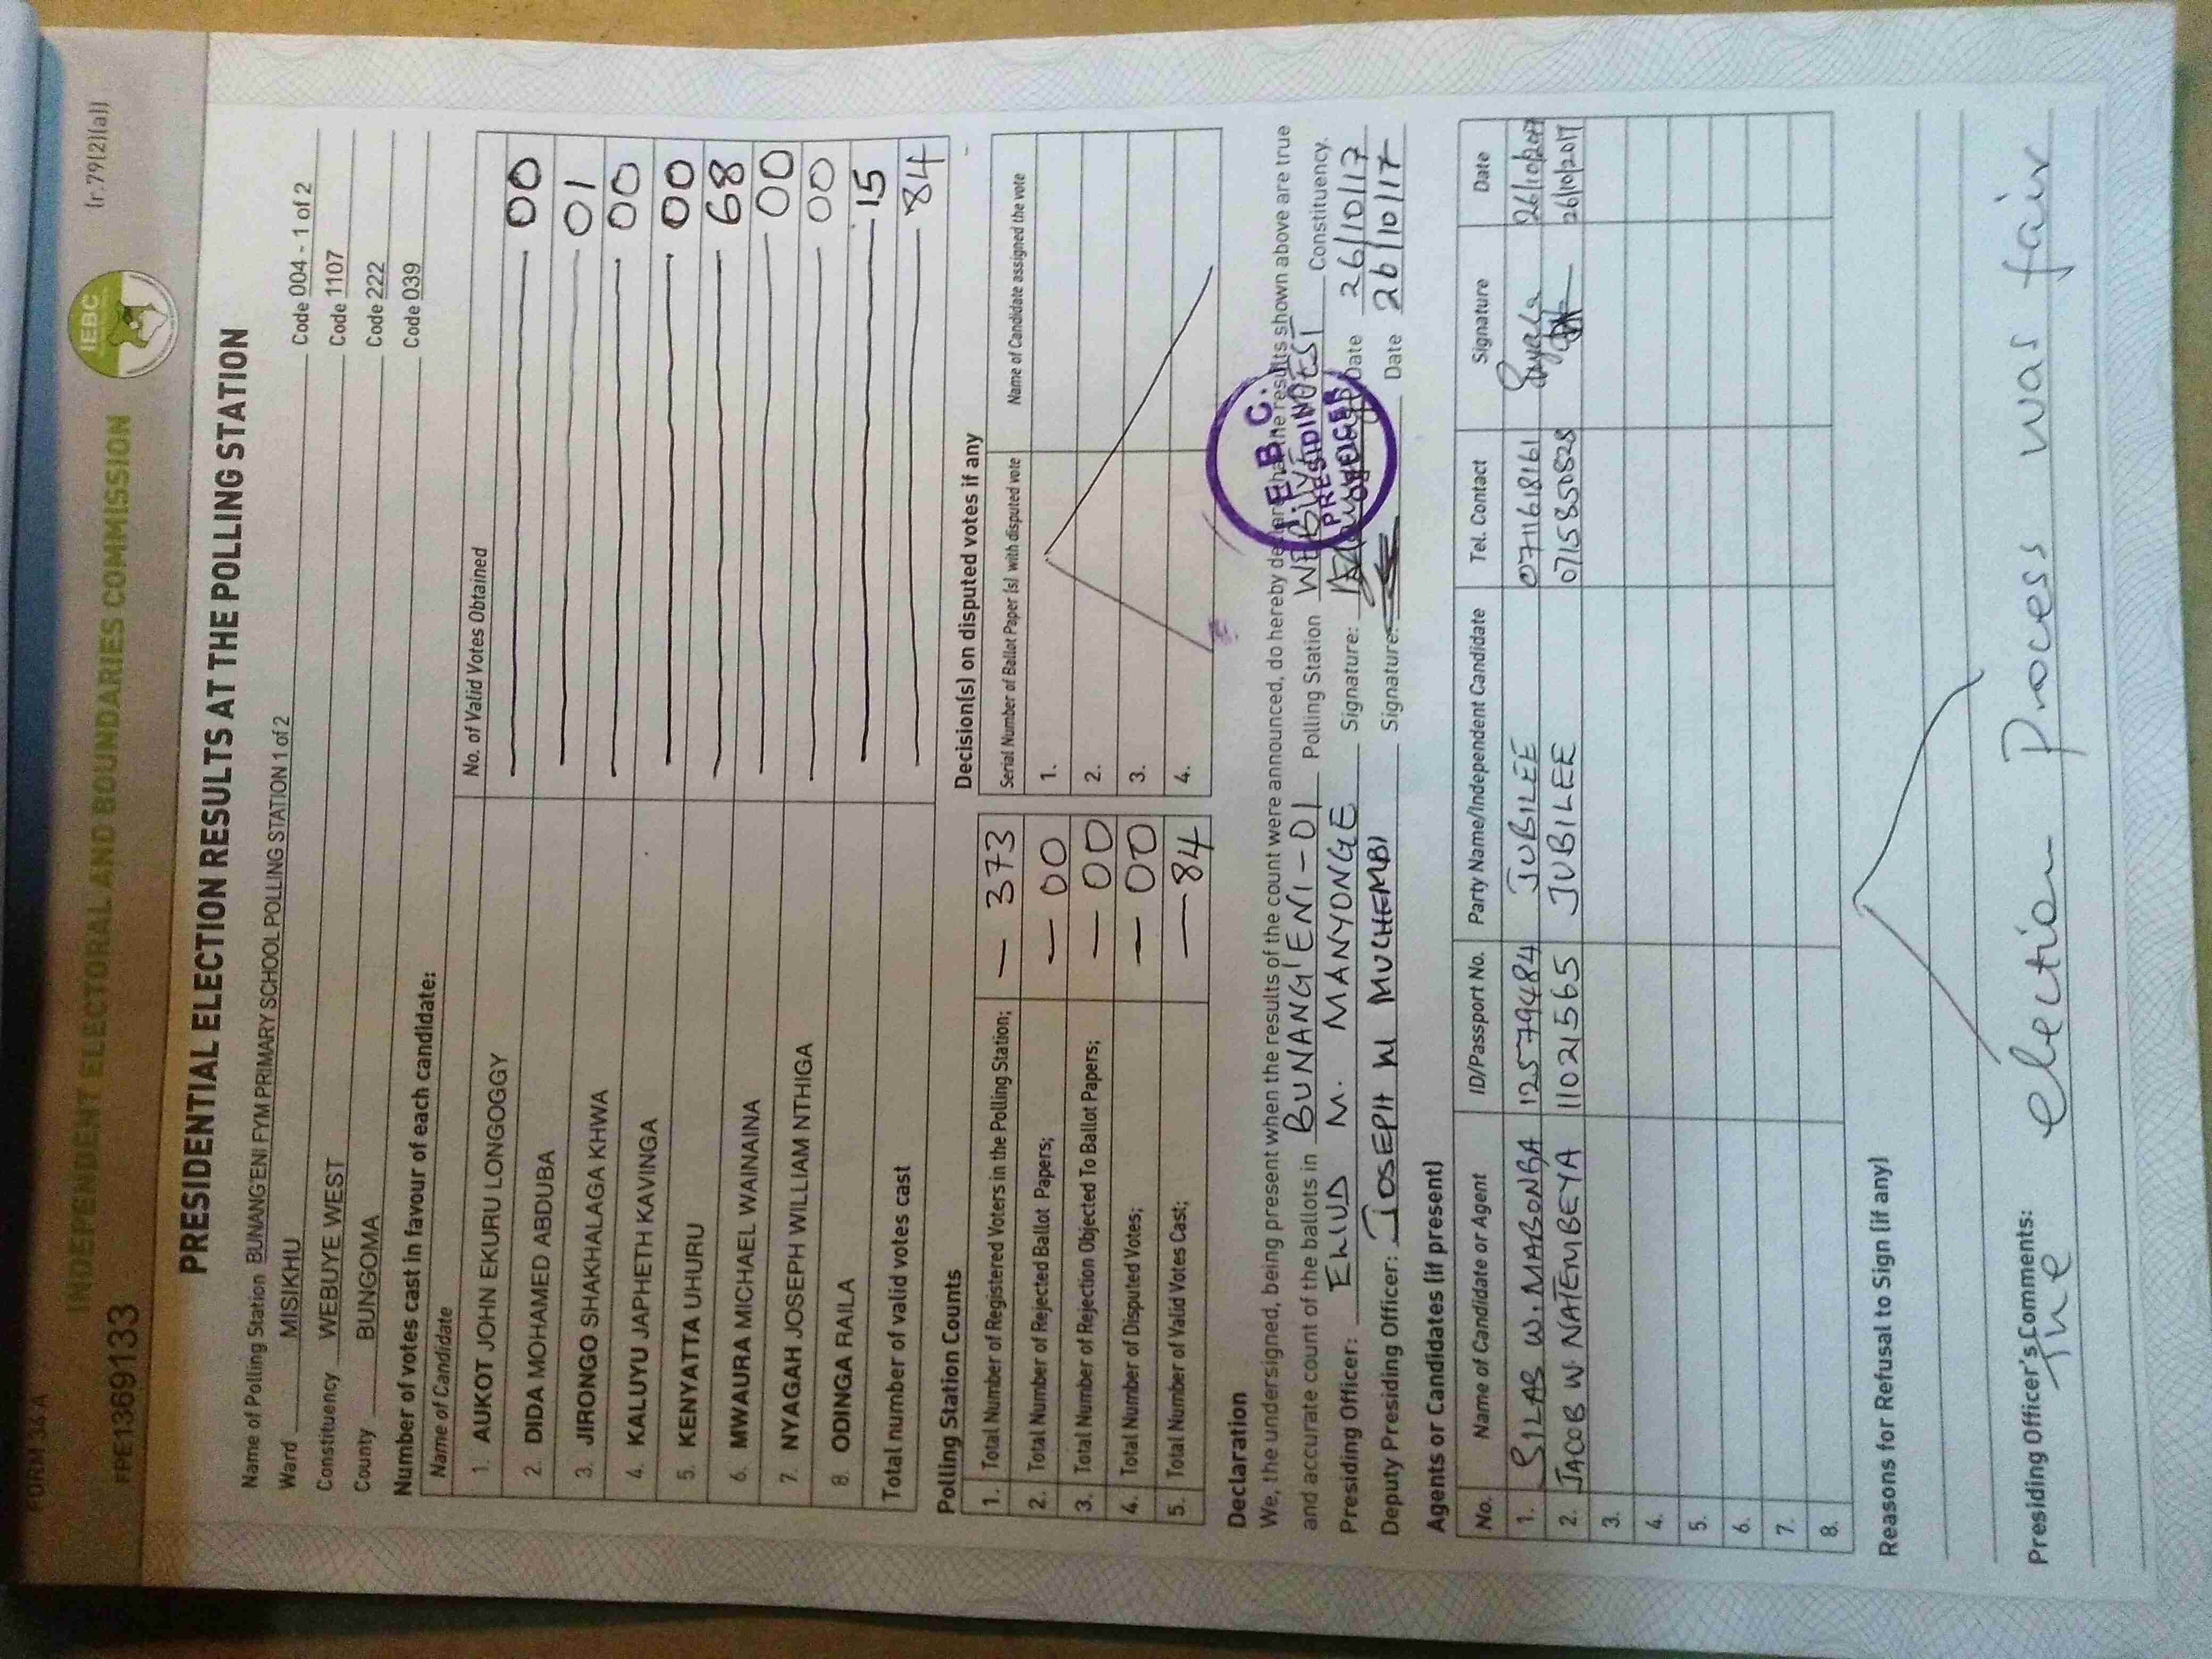 FORM 34 A
INDEPENDENT ELECTORAL AND BOUNDARIES COMMISSION
IEBC
(r.79(2)(a))
FPE1369133
PRESIDENTIAL ELECTION RESULTS AT THE POLLING STATION
Name of Polling Station BUNANG'ENI FYM PRIMARY SCHOOL POLLING STATION 1 of 2 Code 004 - 1 of 2
Ward MISIKHU Code 1107
Constituency WEBUYE WEST Code 222
County BUNGOMA Code 039
Number of votes cast in favour of each candidate:
Name of Candidate No. of Valid Votes Obtained
1. AUKOT JOHN EKURU LONGOGGY 00
2. DIDA MOHAMED ABDUBA 01
3. JIRONGO SHAKHALAGA KHWA 00
4. KALUYU JAPHETH KAVINGA 00
5. KENYATTA UHURU 68
6. MWAURA MICHAEL WAINAINA 00
7. NYAGAH JOSEPH WILLIAM NTHIGA 00
8. ODINGA RAILA 15
Total number of valid votes cast 84
Polling Station Counts
1. Total Number of Registered Voters in the Polling Station; — 373
2. Total Number of Rejected Ballot Papers; — 00
3. Total Number of Rejection Objected To Ballot Papers; — 00
4. Total Number of Disputed Votes; — 00
5. Total Number of Valid Votes Cast; — 84
Decision(s) on disputed votes if any
Serial Number of Ballot Paper (s) with disputed vote Name of Candidate assigned the vote
1.
2.
3.
4.
Declaration
We, the undersigned, being present when the results of the count were announced, do hereby declare that the results shown above are true
and accurate count of the ballots in BUNANG'ENI - 01 Polling Station WEBUYE WEST Constituency.
Presiding Officer: EHUD M. MANYONGE Signature: Date 26/10/17
Deputy Presiding Officer: JOSEPH W MUCHEMBI Signature: Date 26/10/17
I.E.B.C.
PRESIDING
OFFICER
Agents or Candidates (if present)
No. Name of Candidate or Agent ID/Passport No. Party Name/Independent Candidate Tel. Contact Signature Date
1. SILAS W. MABONGA 12579484 JUBILEE 0711618161 26/10/2017
2. JACOB W NATEMBEYA 11021565 JUBILEE 26/10/2017
3.
4.
5.
6.
7.
8.
Reasons for Refusal to Sign (if any)
Presiding Officer's Comments:
The election Process was fair